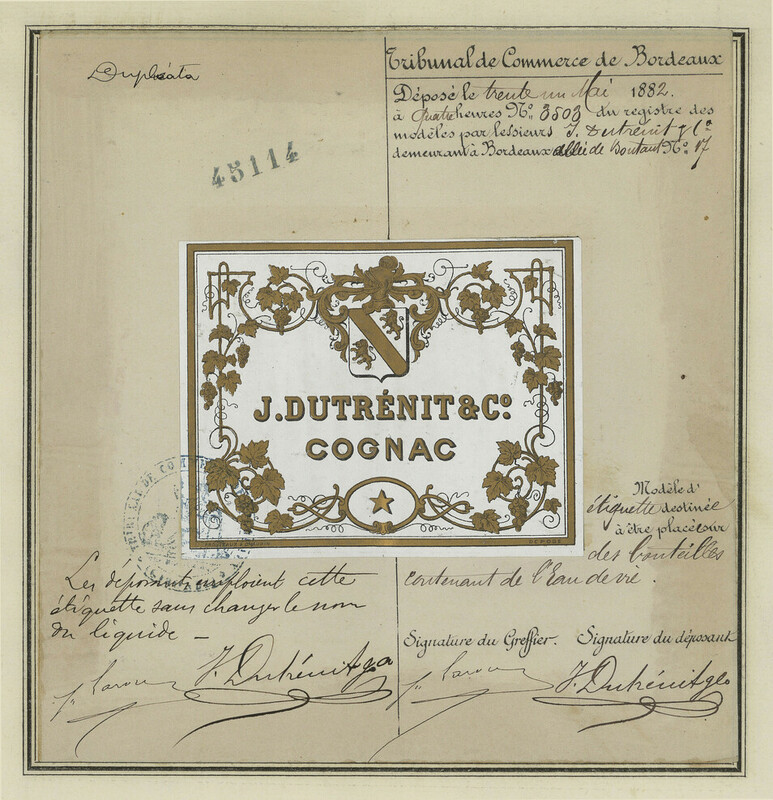 Duplicata
45114
Tribunal de Commerce de Bordeaux
Déposé le trente un Mai 1882.
à quatre heures No. 3503 du registre des
modèles par les sieurs J. Dutrénit & Cie
demeurant à Bordeaux allée de Boutaut No. 17
J. DUTRÉNIT & Co.
COGNAC
TRIBUNAL DE COM
Modèle d'
étiquette destinée
à être placée sur
des bouteilles
contenant de l'Eau de vie.
Les déposants emploient cette
étiquette sans changer le nom
du liquide –
Signature du Greffier. Signature du déposant
J. Dutrénit & Co
J. Dutrénit & Co